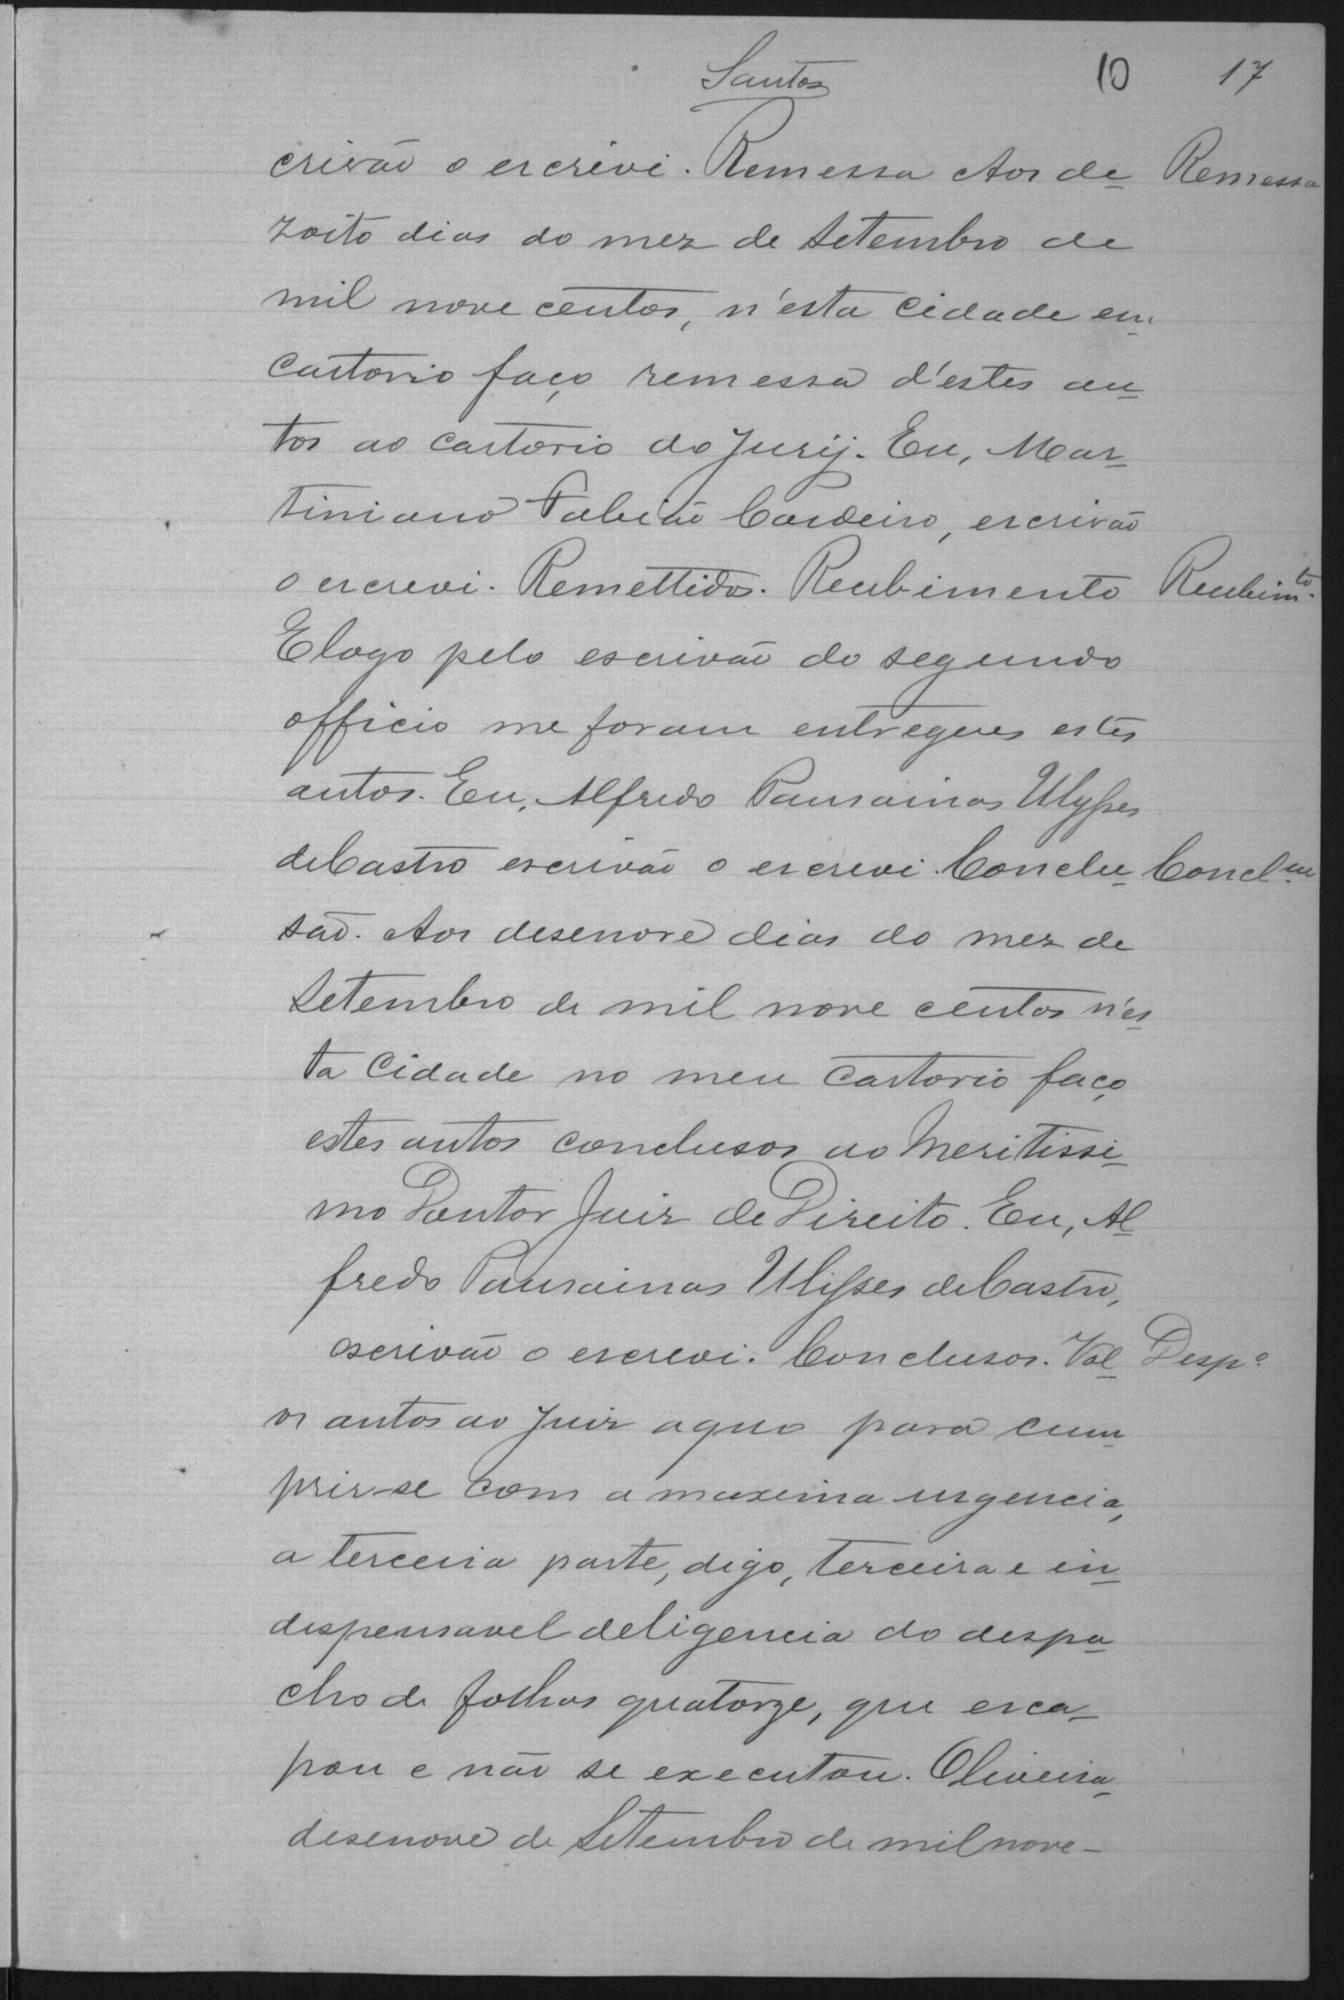 Santos 10 17
crivão o escrevi. Remessa Aos de- Remessa
zoito dias do mez de Setembro de
mil nove centos, n'esta Cidade em
Cartorio faço remessa d'estes au-
tos ao Cartorio do Jury. Eu, Mar-
tiniano Fabião Cordeiro, escrivão
o escrevi. Remettidos. Recebimento Recebimto.
E logo pelo escrivão do segundo
officio me foram entregues estes
autos. Eu, Alfredo Pausainas Ulysses
de Castro escrivão o escrevi. Conclu- Conclu
são. Aos desenove dias do mez de
Setembro de mil nove centos n'es
ta Cidade no meu Cartorio faço
estes autos conclusos ao Meritissi-
mo Doutor Juiz de Direito. Eu, Al-
fredo Pausainas Ulisses de Castro,
escrivão o escrevi. Conclusos. Vol- Despo
os autos ao Juiz aquo para cum-
prir-se com a maxima urgencia,
a terceira parte, digo, terceira e in-
dispensavel deligencia do despa-
cho de folhas quatorze, que esca-
pou e não se executou. Oliveira
desenove de Setembro de mil nove-